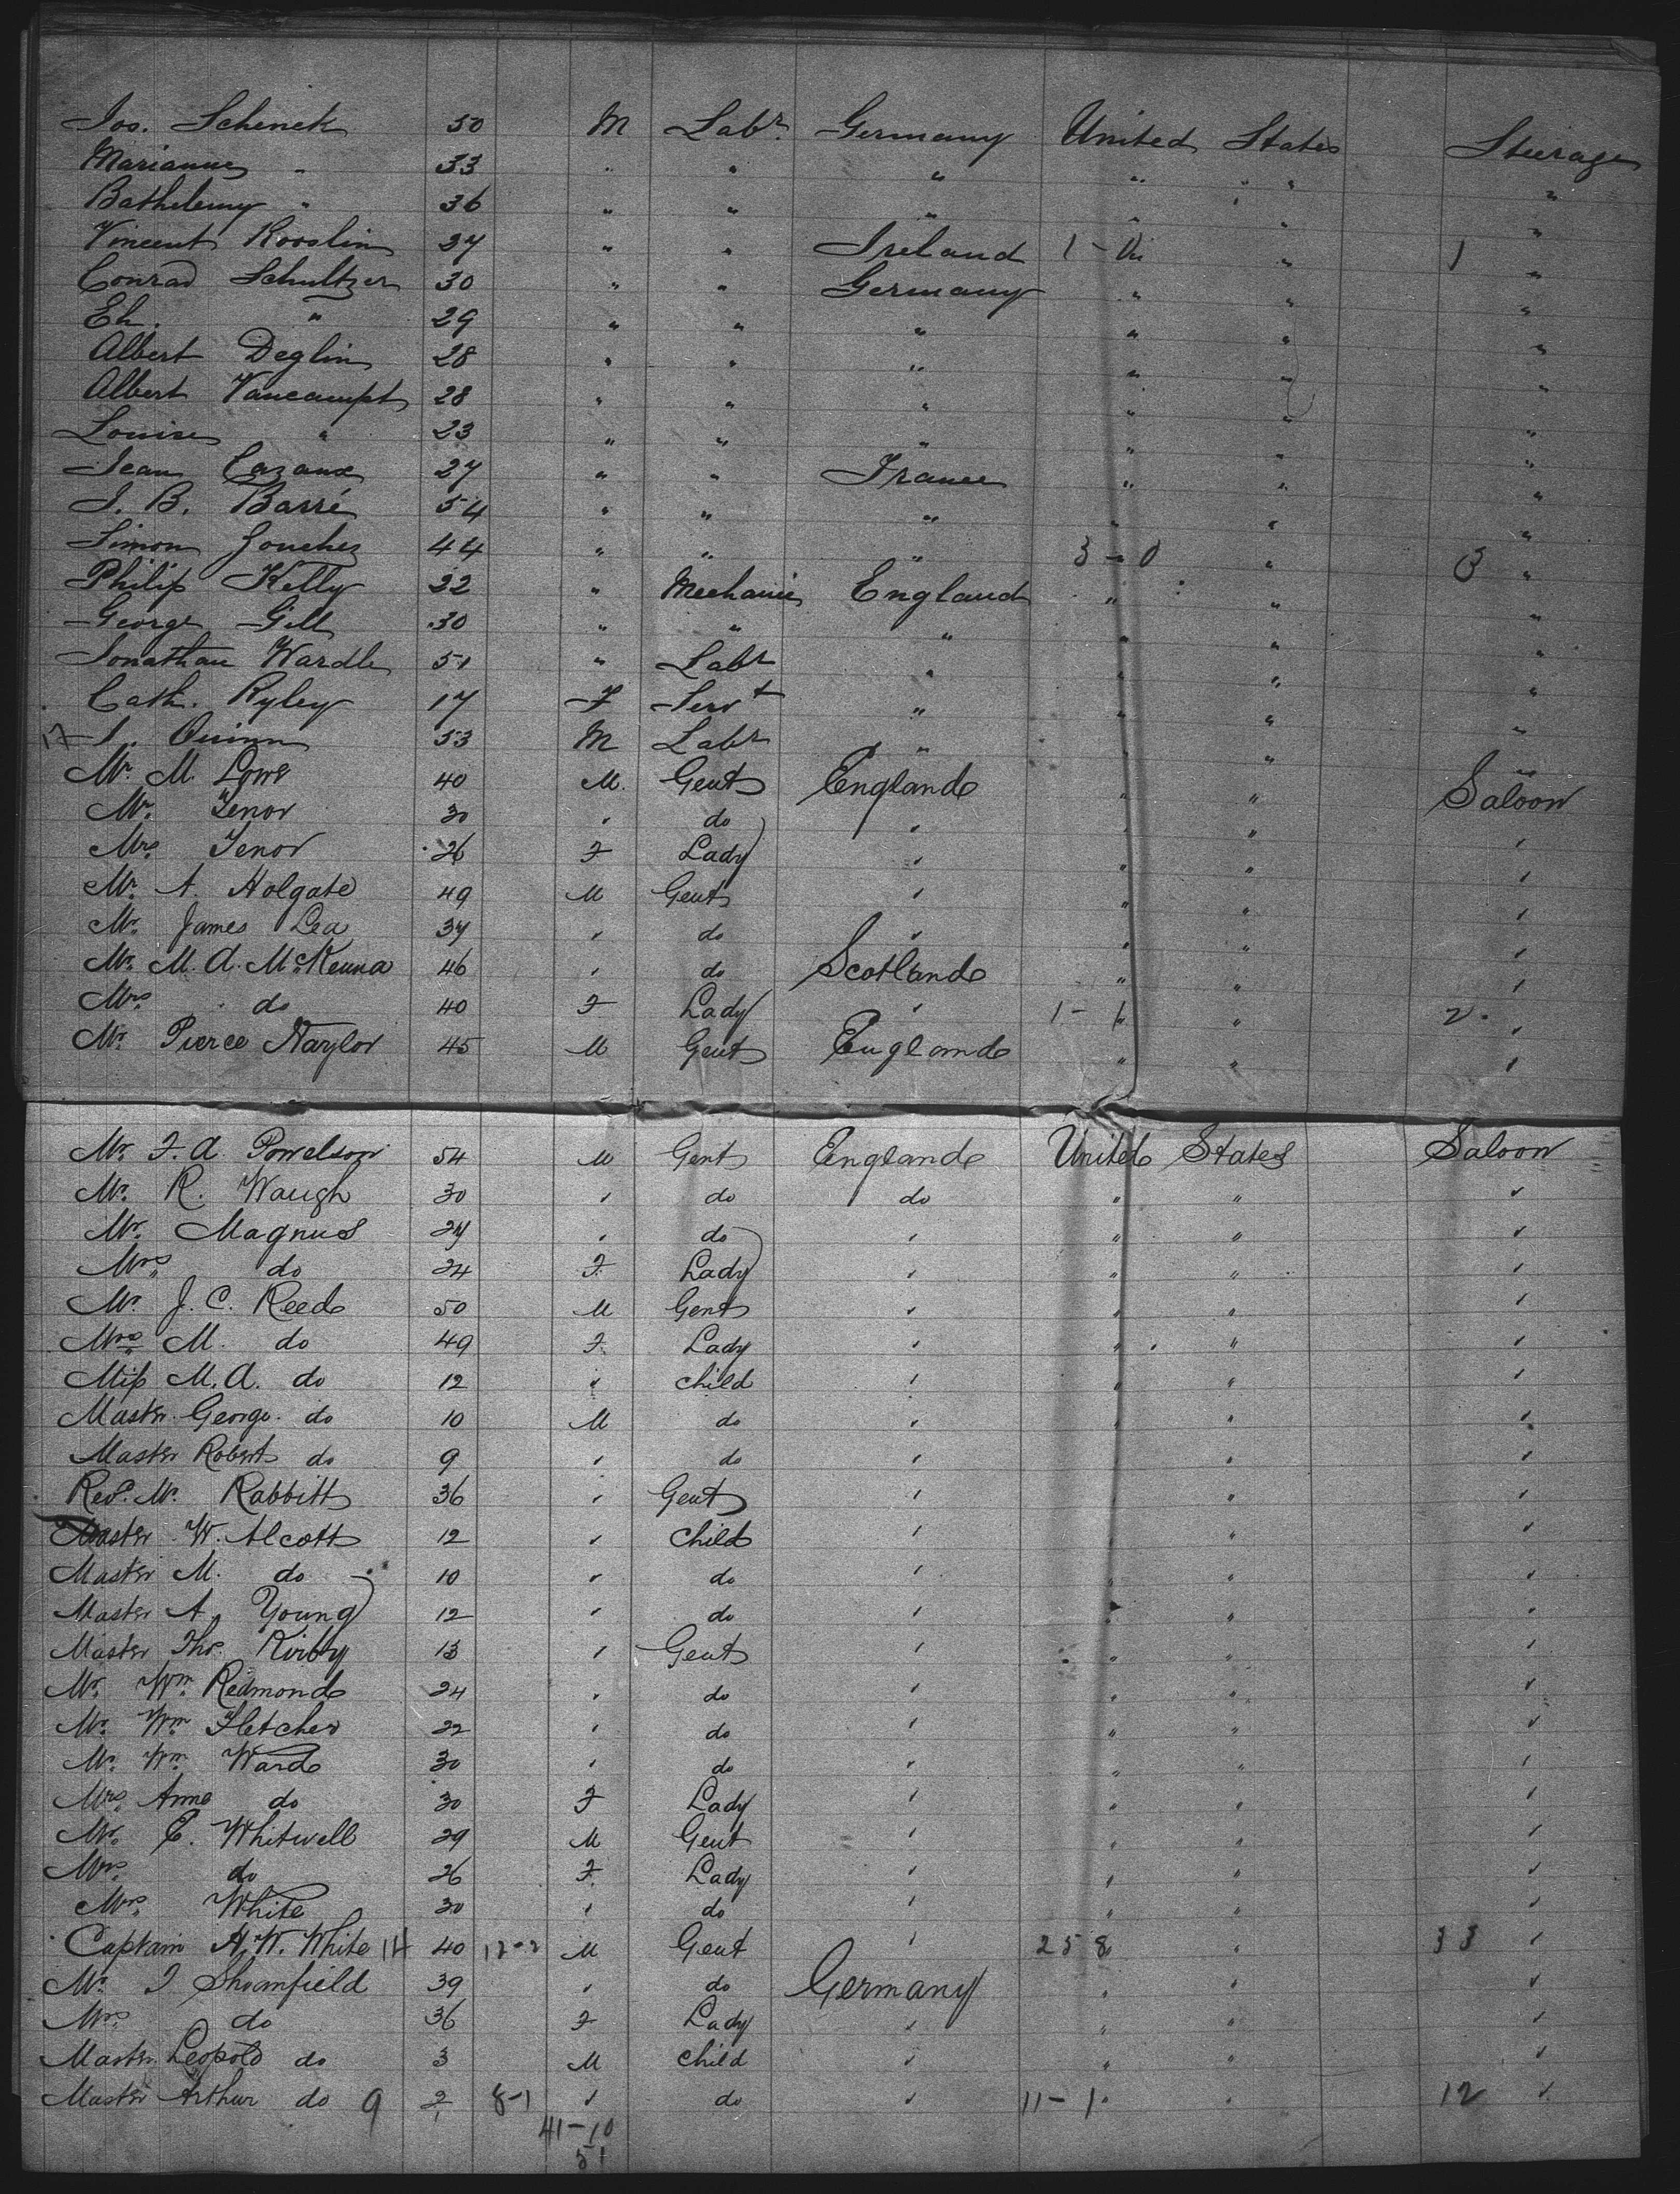 Jos. Schenck 50 M Labr Germany United States Steerage
Marianne " 33 " " " " " "
Bathelemy " 36 " " " " " "
Vincent 27 " " Ireland 1 - 0 " 1 "
Conrad Schultzer 30 " " Germany " " "
Eh. " 29 " " " " " "
Albert Deglin 28 " " " " " "
Albert Vancampt 28 " " " " " "
Louise " 23 " " " " " "
Jean Cazaux 27 " " France " " "
J. B. Barré 54 " " " " " "
Simon 44 " " " 3 - 0 " 3 "
Philip Kelly 22 " Mechanic England " " "
George Gill 30 " " " " " "
Jonathan Wardle 51 " Labr " " " "
Cath. Ryley 17 F Servt " " " "
17 J. Quinn 53 M Labr " " " "
Mr. M. Lowe 40 M. Gent England " " Saloon
Mr. Tenor 30 " do " " " "
Mrs. Tenor 26 F Lady " " " "
Mr. A. Holgate 49 M Gent " " " "
Mr. James Lea 34 " do " " " "
Mr. M. A. McKenna 46 " do Scotland " " "
Mrs do 40 F Lady " 1 - 1 " 2 "
Mr. Pierce Naylor 45 M Gent England " " "
Mr. F. A. Powelson 54 M Gent England United States Saloon
Mr. R. Waugh 30 " do do " " "
Mr. Magnus 24 " do " " " "
Mrs. do 24 F. Lady " " " "
Mr. J. C. Reed 50 M Gent " " " "
Mrs. M. do 49 F. Lady " " " "
Miss M. A. do 12 " child " " " "
Master George do 10 M do " " " "
Master Robert do 9 " do " " "
Revd. Mr. Rabbitt 36 " Gent " " "
Master W. Alcott 12 " child " " "
Master M. do 10 " do " " " "
Master A. Young 12 " do " " " "
Master Thos. Kirby 13 " Gent " " " "
Mr. Wm. Redmond 24 " do " " " "
Mr. Wm Fletcher 22 " do " " " "
Mr. Wm. Ward 30 " do " " " "
Mrs. Anne do 30 F Lady " " " "
Mr. E. Whitwell 29 M Gent " " " "
Mrs. do 26 F. Lady " " " "
Mrs. White 30 " do " " " "
Captain H. W. White 14 40 12-2 M Gent " 25 8 " 33 "
Mr. J Shoanfield 39 " do Germany " " "
Mrs. do 36 F Lady " " " "
Master Leopold do 3 M child " " " "
Master Arthur do 9 2 8-1 " do " 11-1 " 12 "
41-10
51